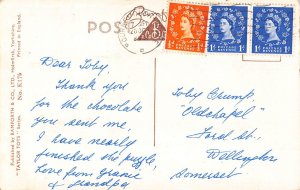 POS
Published by BAMFORTH & CO. LTD., Holmfirth, Yorkshire.
"TATLOR TOTS" Series.
No. K.174
Printed in England.
Dear Toby,
Thank you
for the chocolate
you sent me,
I have nearly
finished the puzzle,
Love from Grannie
& Grandpa
Toby Crump,
"Oldchapel"
Ford St.,
Wellington
Somerset